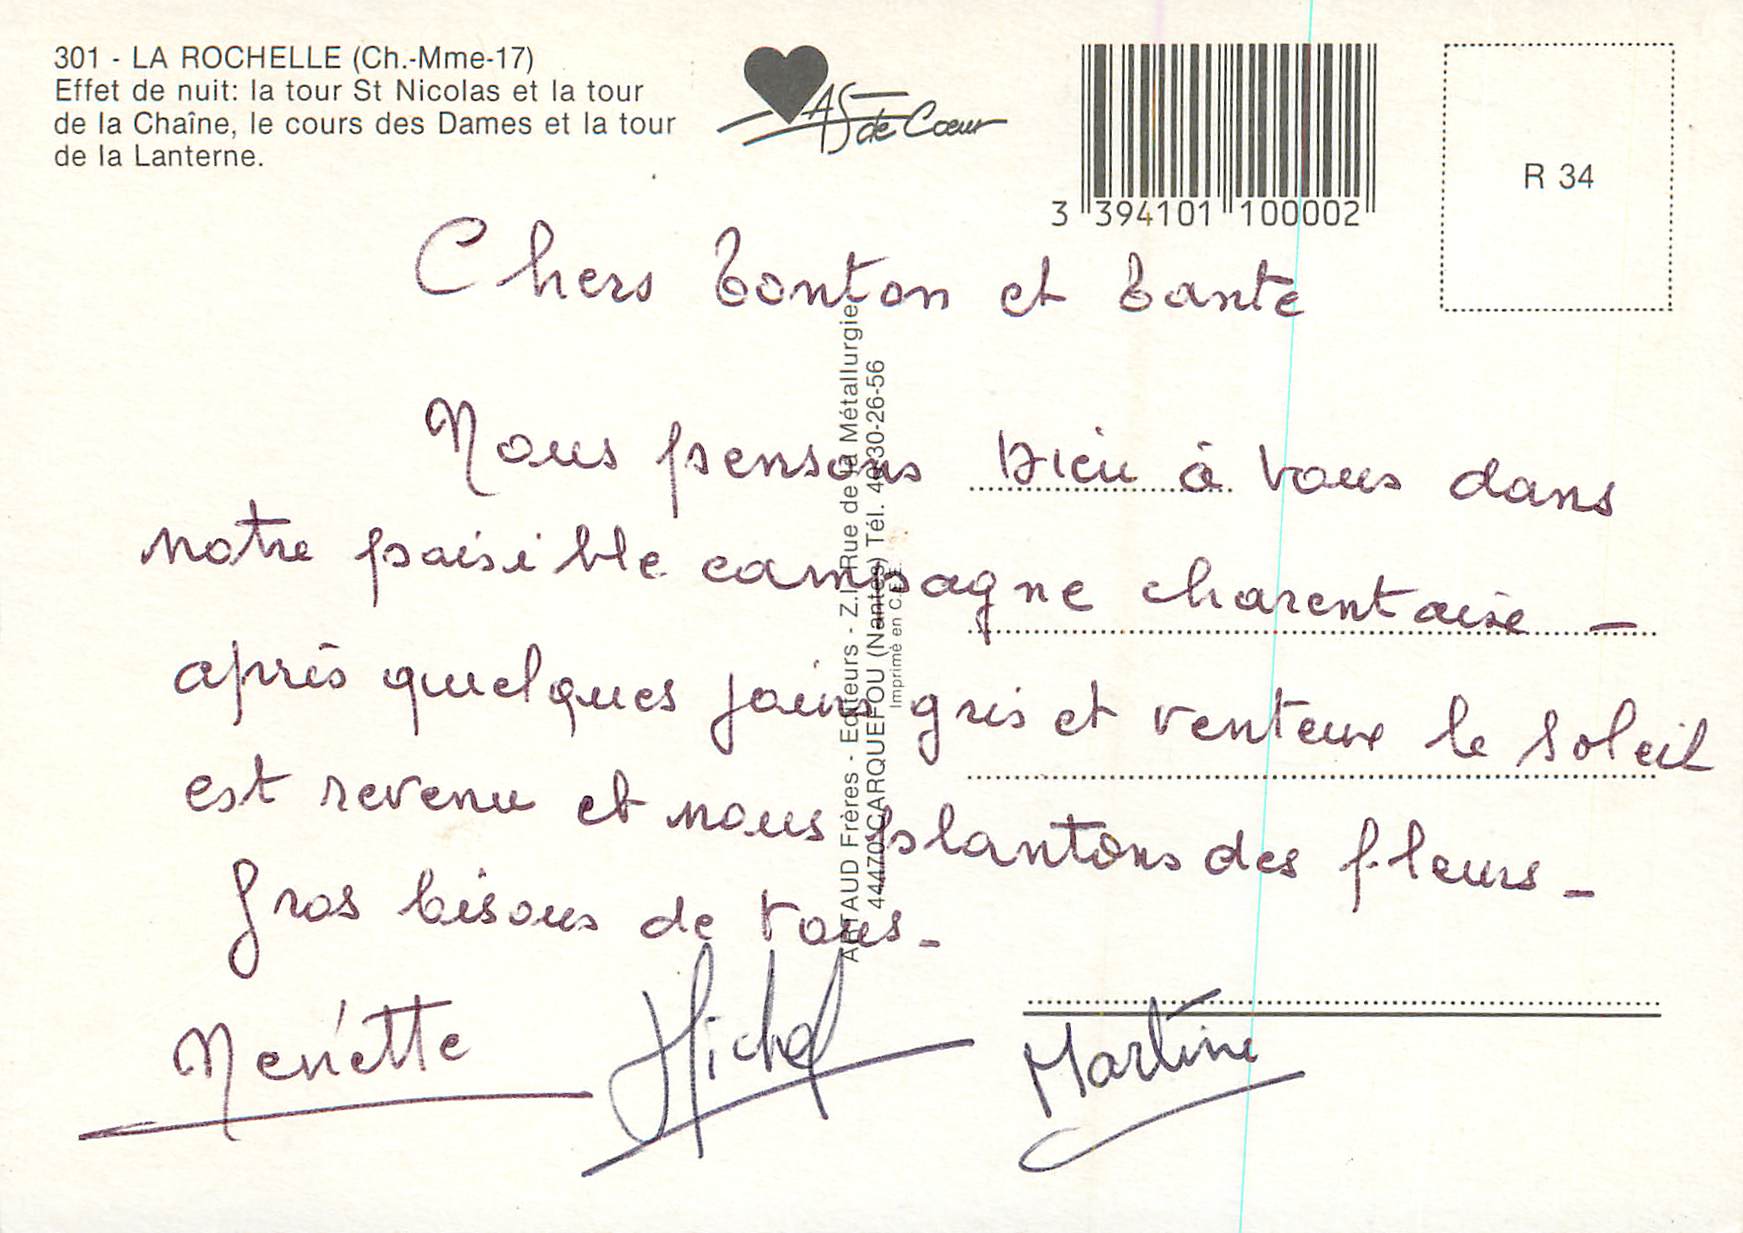 301 - LA ROCHELLE (Ch.-Mme-17)
Effet de nuit: la tour St Nicolas et la tour
de la Chaîne, le cours des Dames et la tour
de la Lanterne.
AS de Cœur
3 394101 100002
R 34
Chers Tonton et Tante
Nous pensons bien à vous dans
notre paisible campagne charentaise -
après quelques jours gris et venteux le soleil
est revenu et nous plantons des fleurs -
Gros bisous de tous -
Michel
Martine
ARTAUD Frères - Editeurs - Z.I. Rue de la Métallurgie
44470 CARQUEFOU (Nantes) Tél. 40-30-26-56
Imprimé en C.E.E.